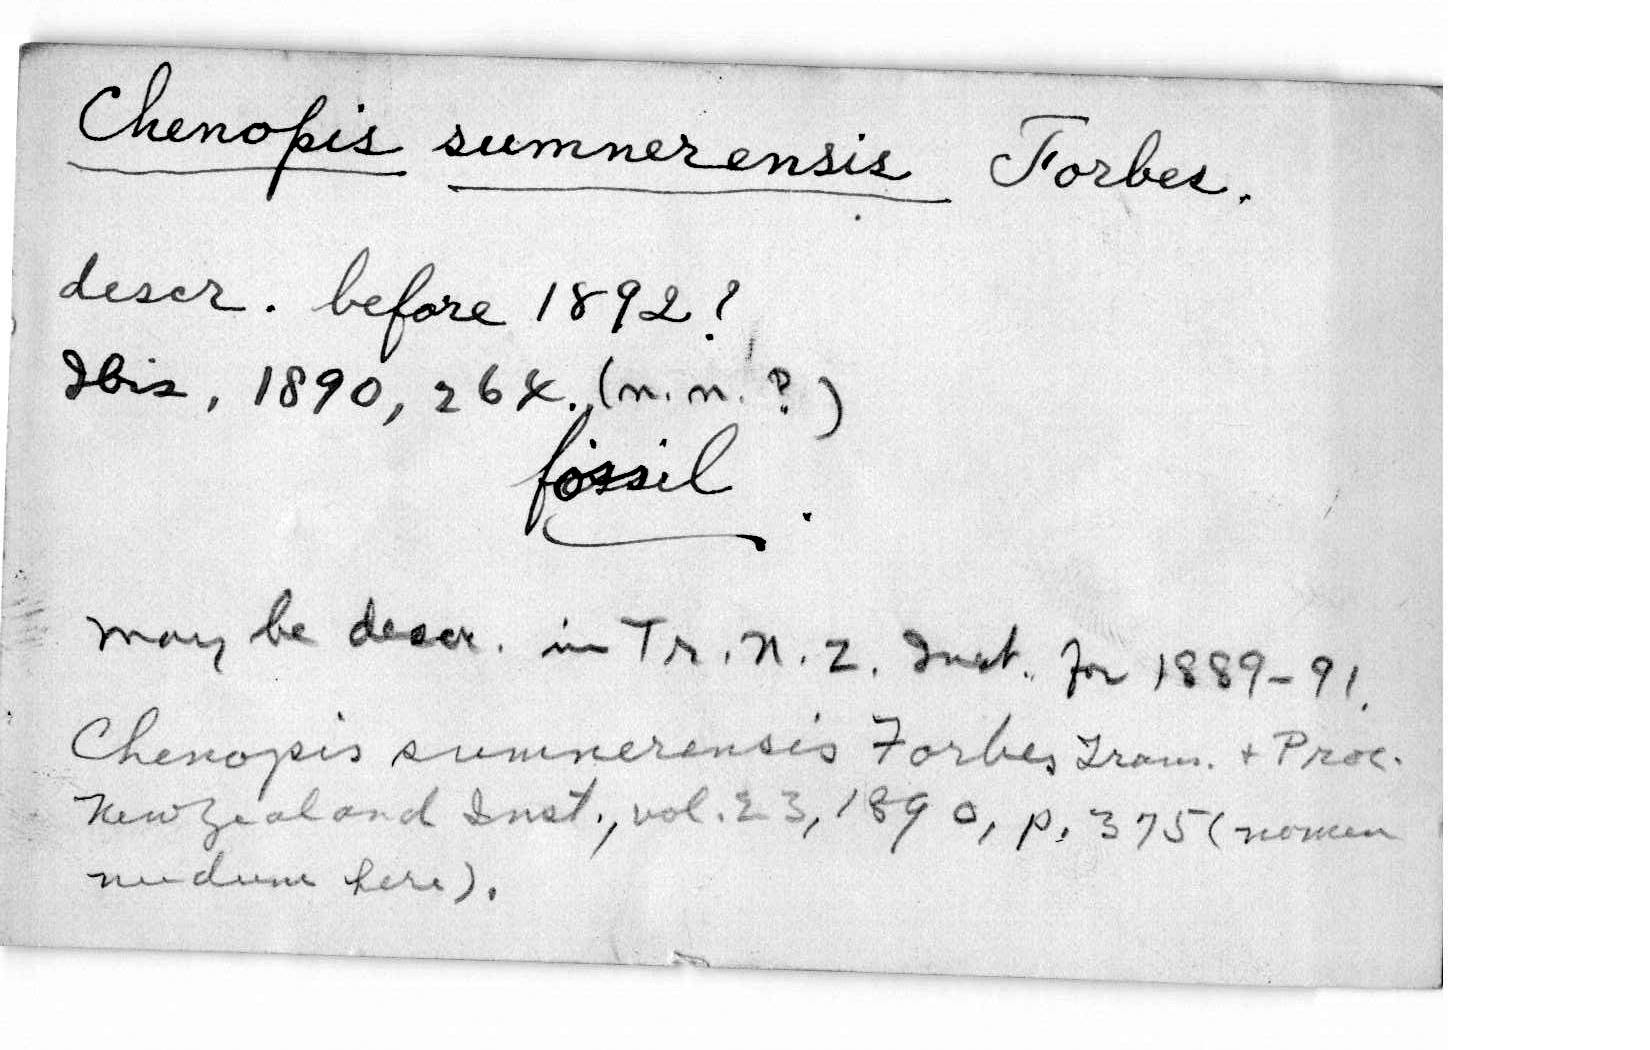 Chenopis sumnerensis Forbes.
descr. before 1892?
Ibis, 1890, 264. (n.n.?)
fossil.
may be descr. in Tr. N. Z. Inst. for 1889-91.
Chenopis sumnerensis Forbes Trans. + Proc.
New Zealand Inst., vol. 23, 1890, p. 375 (nomen
nudum here).